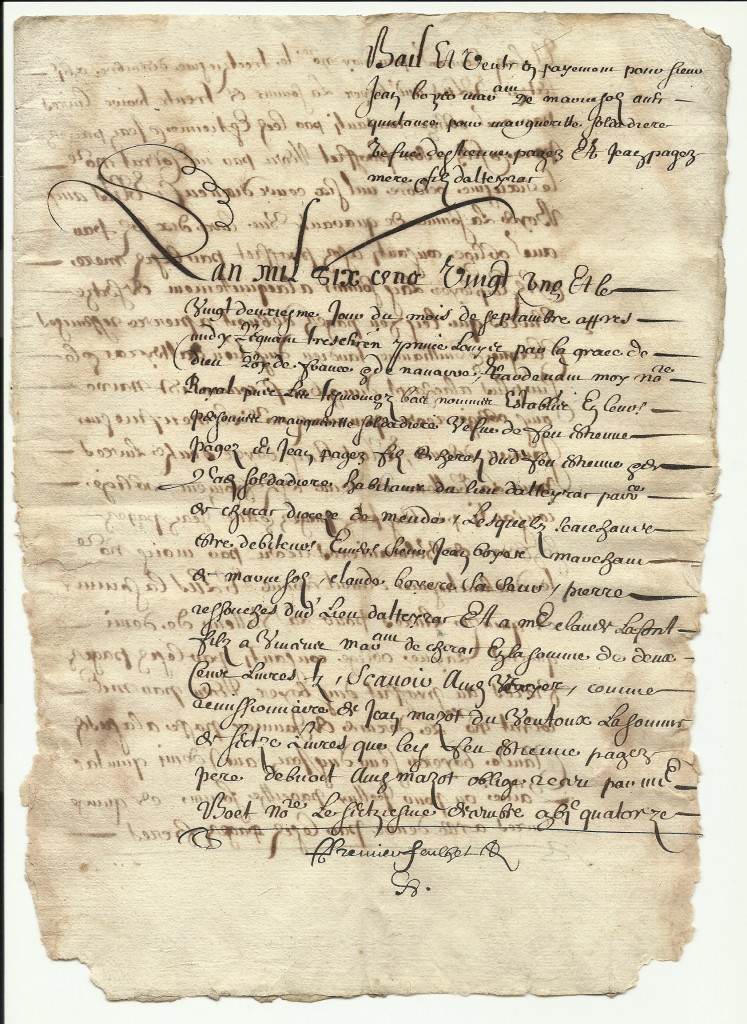 Bail Et Vente En payement pour sieur
Jean boyer mar^an^ de maruejolz auec
quictance pour margueritte soldadiere
Vefue destienne pagez Et Jean pagez
mere Et filz dalteyrac
Lan mil Six cens Vingt Vng Et le
Vingt deuxiesme Jour du mois de septambre appres
midy Regnant treschrestien prince Louys par la grace de
dieu Roy de france Et de nauarre pardeuant moy no^re^
Royal Et les tesmoingz bas nommes Establis En leurs
personnes margueritte soldadiere Vefue de feu Estienne
pagez Et Jean pagez filz Et heretier dud^t^ feu Estienne Et de
lad^e^ soldadiere habitans du lieu dalteyrac parr^e^
de chirac dioceze de mende, Lesquelz scaichantz
Estre debiteurs Enuers sieur Jean boyer marchant
de maruejolz, claude boyere sa sœur, pierre
ressouches dud^t^ Lieu dalteyrac Et a m^e^ claude Lafont
filz a mar^an^ de chirac En la somme de deux
Cens Liures tz, Scauoir Aud^t^ boyer, comme
remissionnaire de Jean mazot du Ventoux La somme
de sietze Liures que led^t^ feu Estienne pagez
pere debuoit Aud^t^ mazot oblige receu par m^e^
Boet No^re^ Le sietziesme decembre mil vi^c^ quatorze
premier feulhet
B.